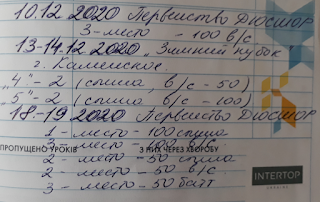 10.12.2020 Первенство ДЮСШОР
3-место - 100 в/с
13-14.12 2020 „Зимний кубок
г. Каменское.
„4"-2 (спина, в/с - 50)
„5"-2 (спина, в/с - 100)
18-19 2020 Первенство ДЮСШОР
1 - место - 100 спина
3 - место - 100 в/с
ПРОПУЩЕНО УРОКІВ З НИХ ЧЕРЕЗ ХВОРОБУ
2 - место - 50 спина
2 - место - 50 в/с
3 - место - 50 батт
INTERTOP
UKRAINE